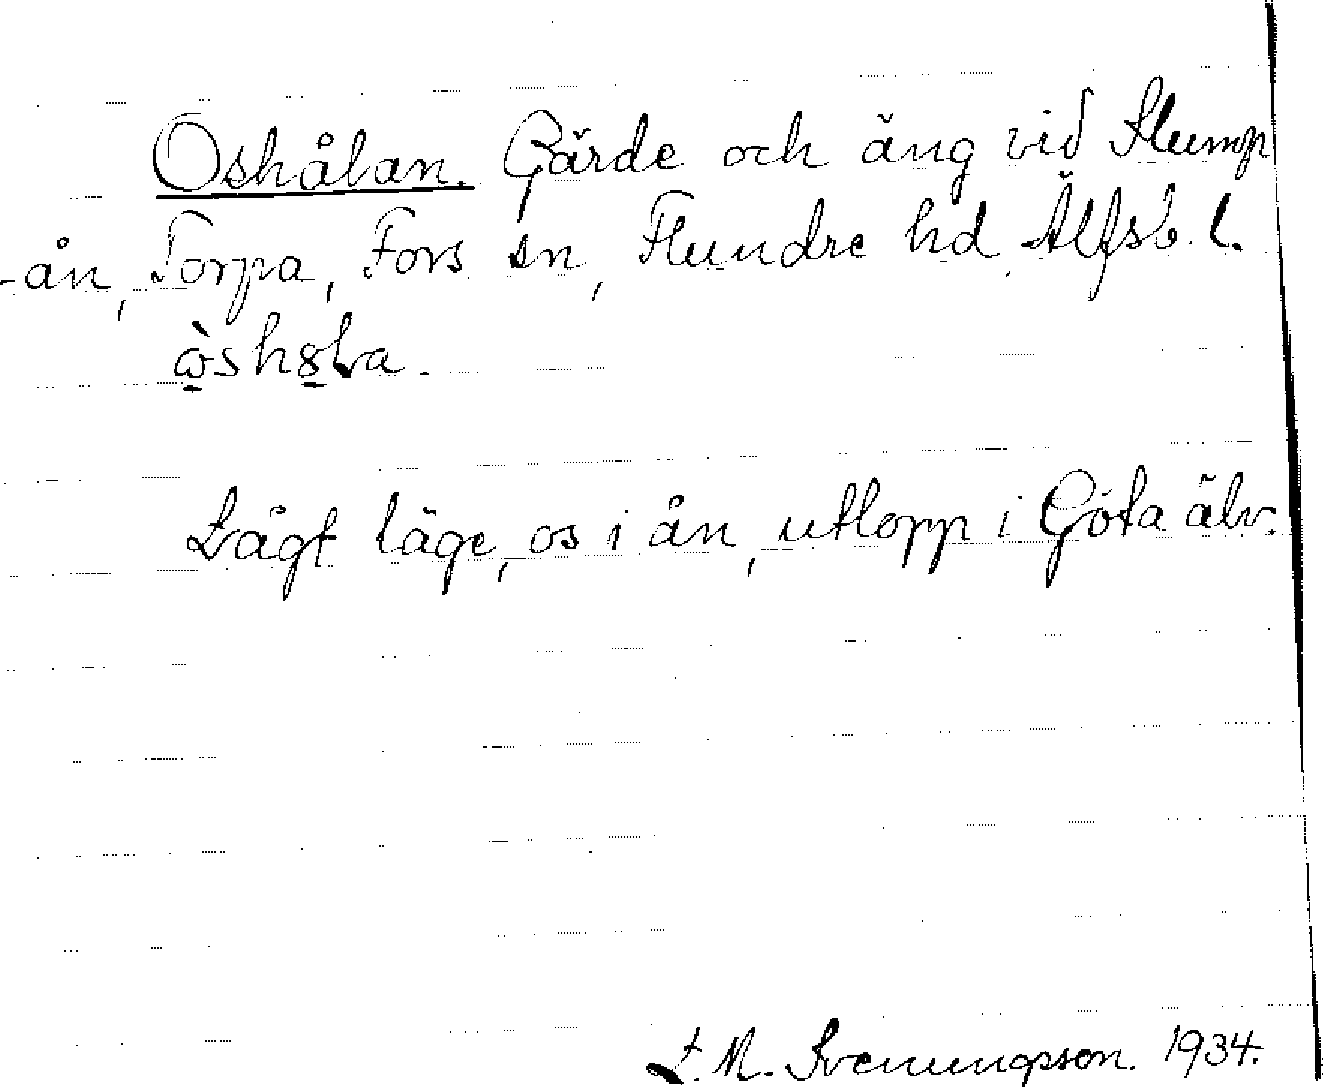 Oshålan. Gärde och äng vid Slump
-ån, Torpa, Fors sn, Flundre hd Älfsb. l.
Lågt läge, os i ån, utlopp i Göta älv.
S. M. Svenungsson. 1934.